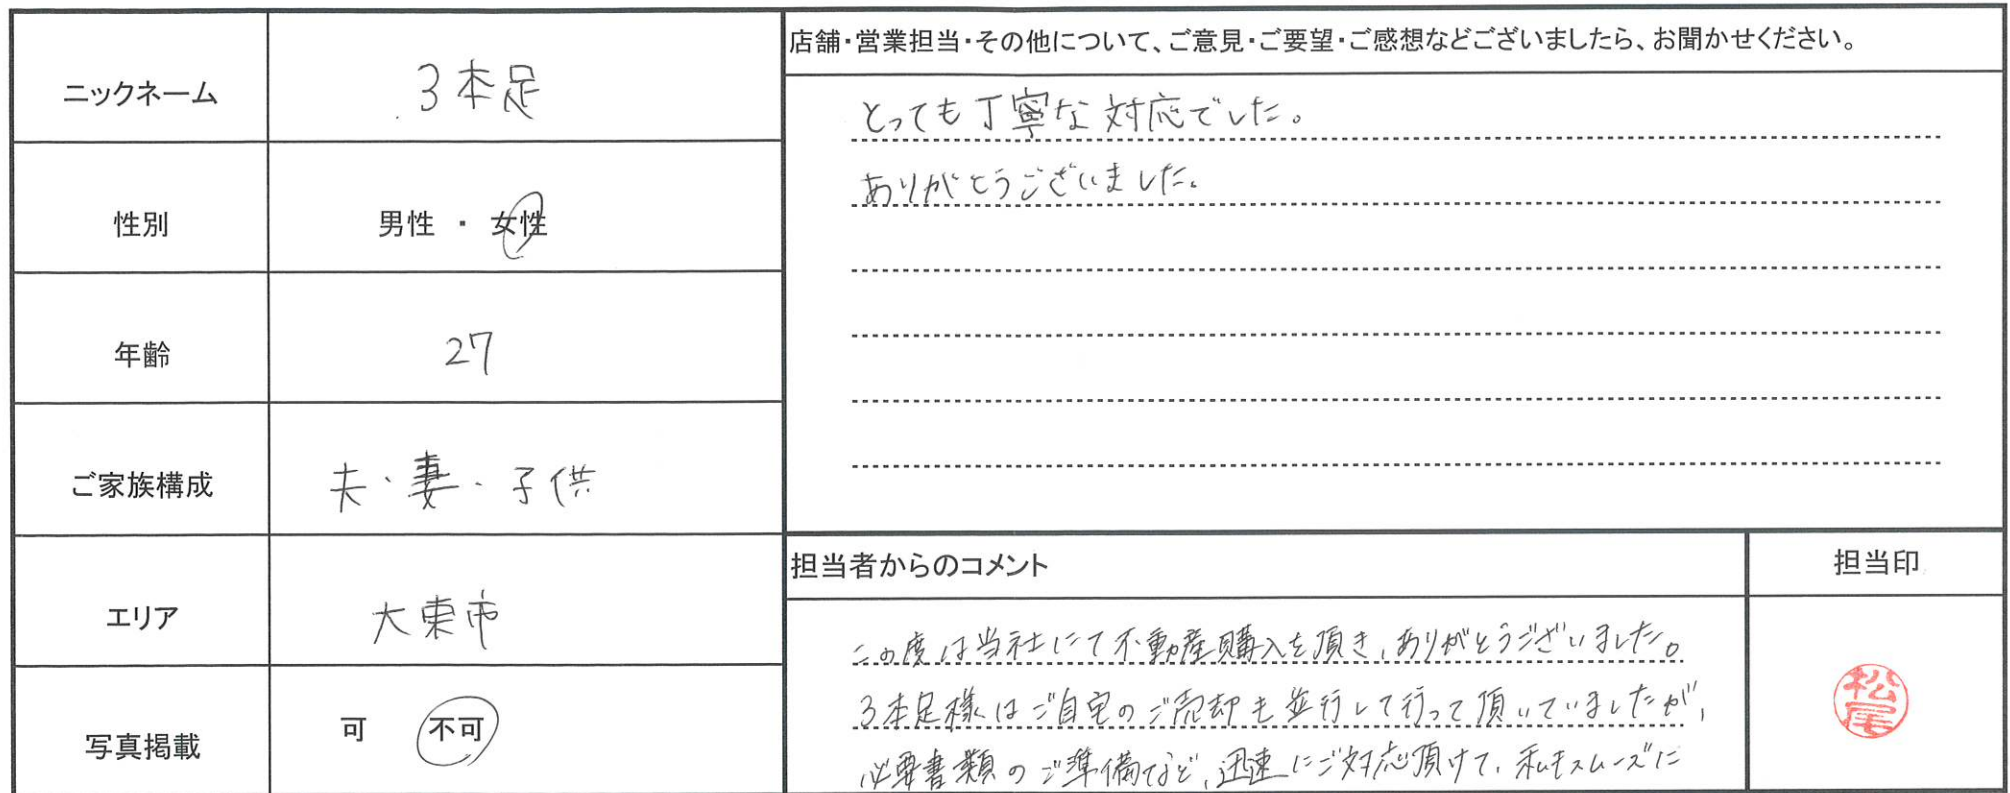 ニックネーム
3本足
性別
男性 ・ 女性
年齢
27
ご家族構成
夫・妻・子供
エリア
大東市
写真掲載
可 不可
店舗・営業担当・その他について、ご意見・ご要望・ご感想などございましたら、お聞かせください。
とっても丁寧な対応でした。
ありがとうございました。
担当者からのコメント
この度は当社にて不動産購入を頂き、ありがとうございました。
3本足様はご自宅のご売却も並行して行って頂いていましたが、
必要書類のご準備など、迅速にご対応頂けて、私もスムーズに
担当印
松尾